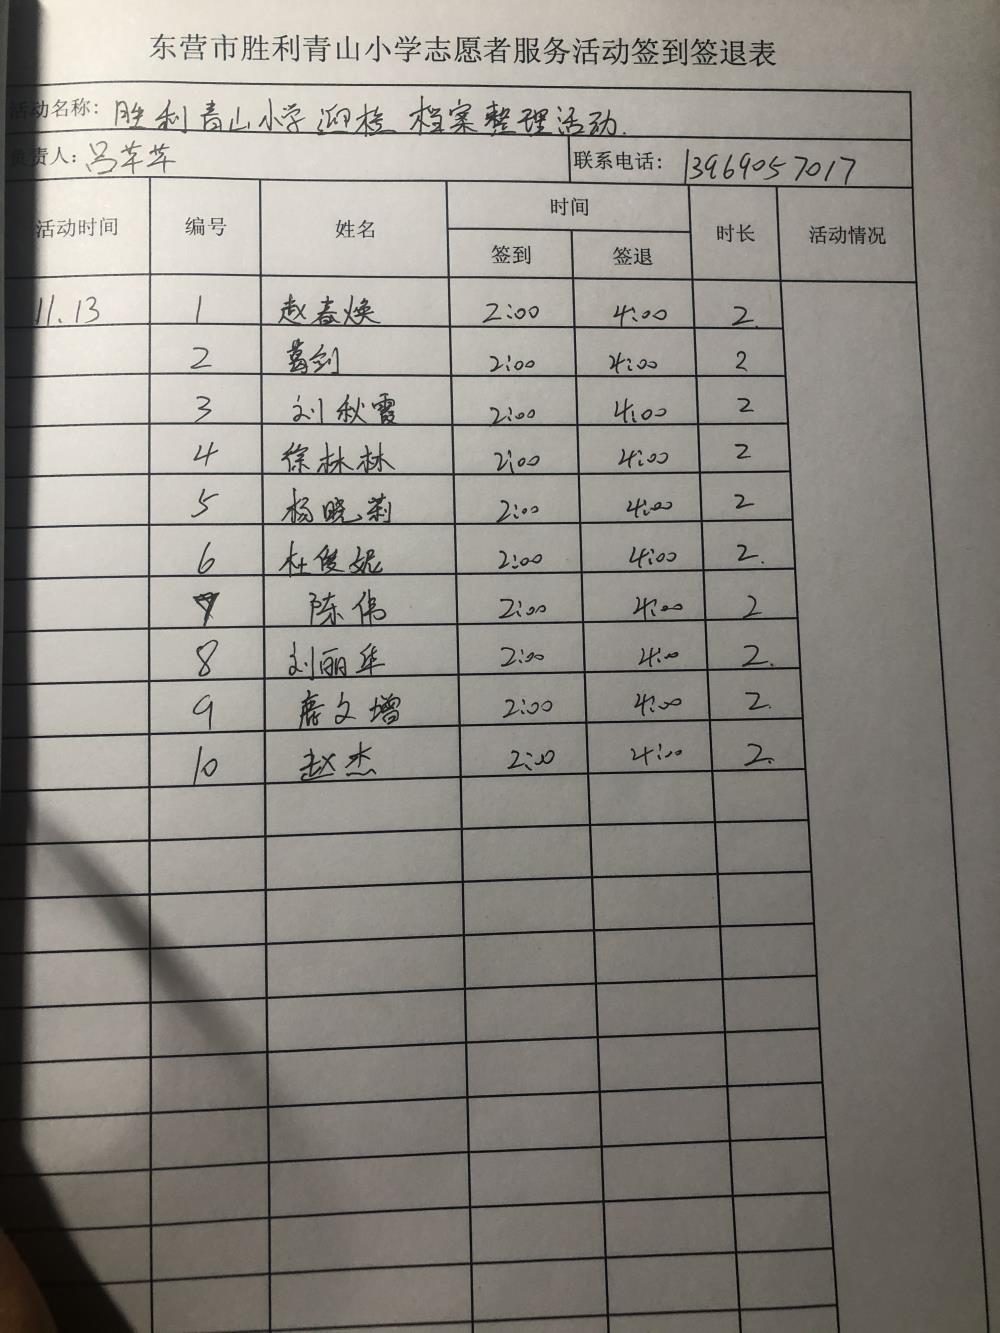 东营市胜利青山小学志愿者服务活动签到签退表
活动名称：胜利青山小学迎检 档案整理活动.
负责人：吕苹苹 联系电话：13969057017
活动时间 编号 姓名 时间 时长 活动情况
签到 签退
11.13 1 赵春焕 2:00 4:00 2.
2 葛剑 2:00 4:00 2
3 刘秋霞 2:00 4:00 2
4 徐林林 2:00 4:00 2
5 杨晓莉 2:00 4:00 2
6 杜俊妮 2:00 4:00 2.
7 陈伟 2:00 4:00 2
8 刘丽华 2:00 4:00 2.
9 唐文增 2:00 4:00 2.
10 赵杰 2:00 4:00 2.